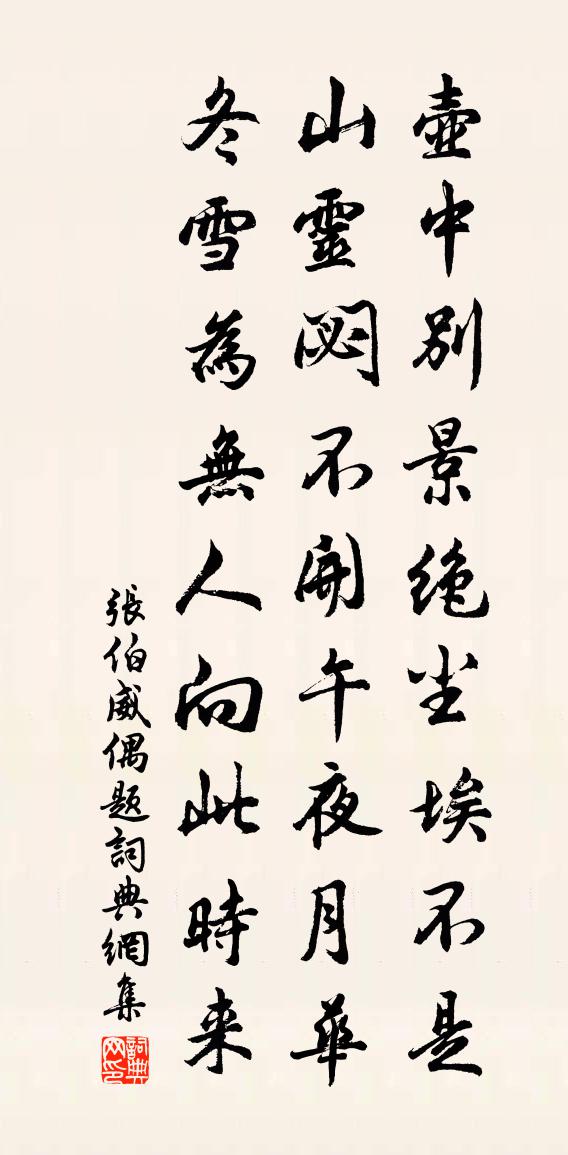 壺中別景绝尘埃不是
山靈閟不開午夜月華
冬雪為無人向此時来
張伯威偶题詞典網集
詞典網印